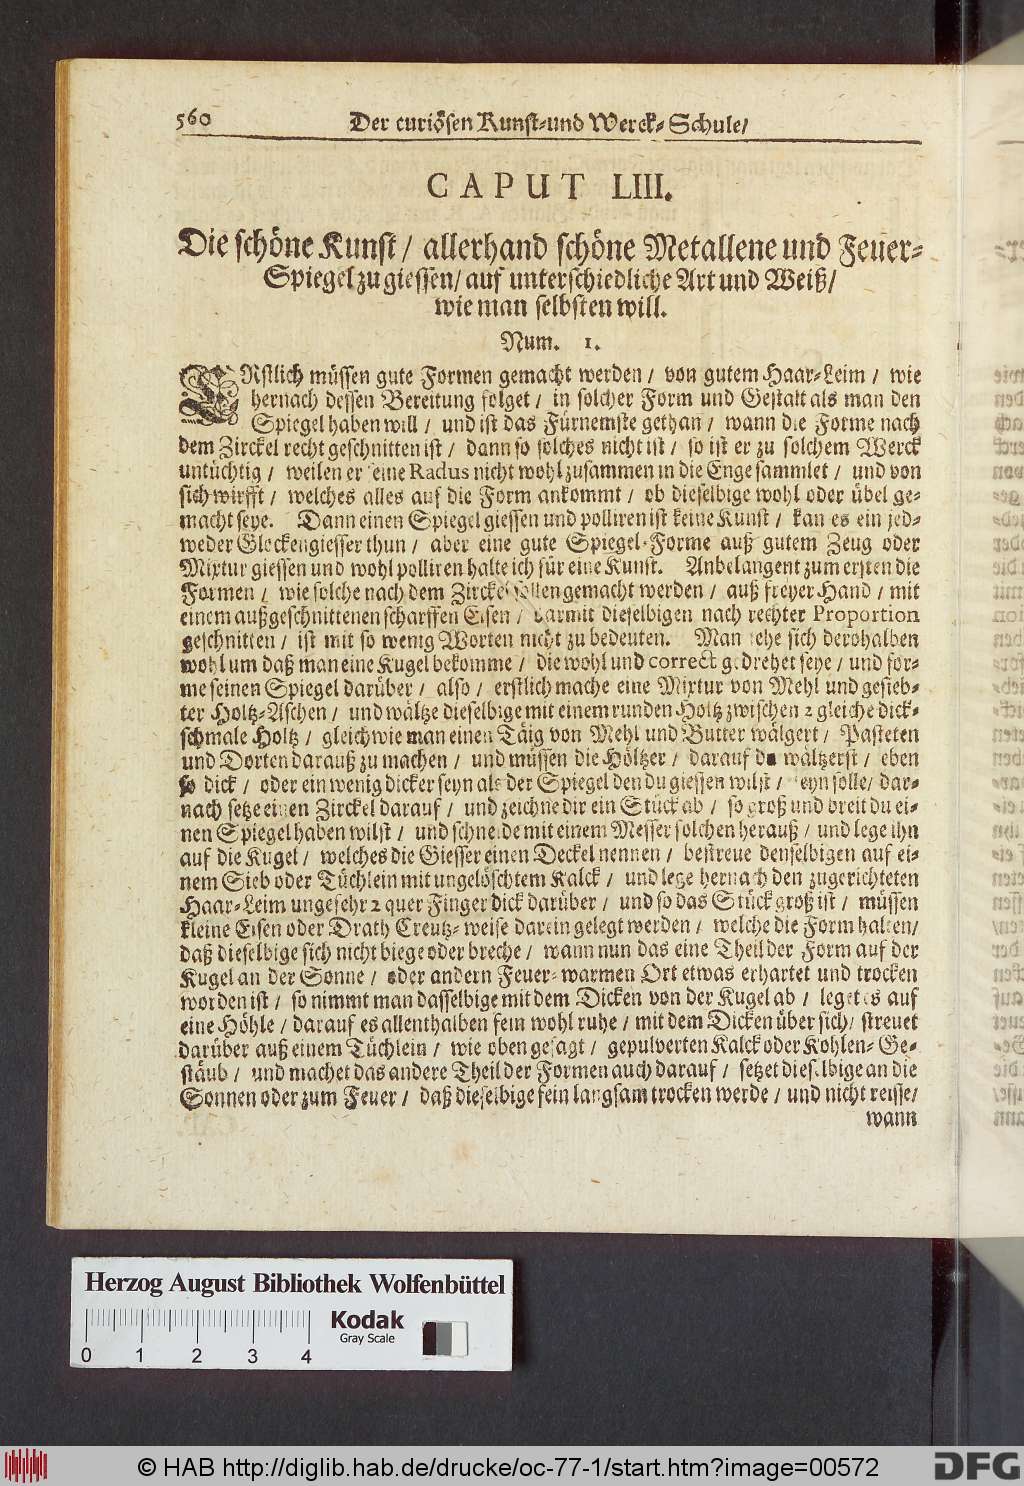 560
Der curiösen Kunst-und Werck-Schule/
CAPUT LIII.
Die schöne Kunst / allerhand schöne Metallene und Feuer-
Spiegel zu giessen / auf unterschiedliche Art und Weiß /
wie man selbsten will.
Num. 1.
ERstlich müssen gute Formen gemacht werden / von gutem Haar-Leim / wie
hernach dessen Bereitung folget / in solcher Form und Gestalt als man den
Spiegel haben will / und ist das Fürnemste gethan / wann die Forme nach
dem Zirckel recht geschnitten ist / dann so solches nicht ist / so ist er zu solchem Werck
untüchtig / weilen er seine Radus nicht wohl zusammen in die Enge sammlet / und von
sich wirfft / welches alles auf die Form ankommt / ob dieselbige wohl oder übel ge-
macht seye. Dann einen Spiegel giessen und polliren ist keine Kunst / kan es ein jed-
weder Glockengiesser thun / aber eine gute Spiegel-Forme auß gutem Zeug oder
Mixtur giessen und wohl polliren halte ich für eine Kunst. Anbelangent zum ersten die
Formen / wie solche nach dem Zirckel sollen gemacht werden / auß freyer Hand / mit
einem außgeschnittenen scharffen Eisen / darmit dieselbigen nach rechter Proportion
geschnitten / ist mit so wenig Worten nicht zu bedeuten. Man sehe sich derohalben
wohl um daß man eine Kugel bekomme / die wohl und correct gedrehet seye / und for-
me seinen Spiegel darüber / also / erstlich mache eine Mixtur von Mehl und gesieb-
ter Holtz-Aschen / und wältze dieselbige mit einem runden Holtz zwischen 2 gleiche dick-
schmale Holtz / gleichwie man einen Täig von Mehl und Butter wälgert / Pasteten
und Dorten darauß zu machen / und müssen die Höltzer / darauf du wältzerst / eben
so dick / oder ein wenig dicker seyn als der Spiegel den du giessen wilst / seyn solle / dar-
nach setze einen Zirckel darauf / und zeichne dir ein Stück ab / so groß und breit du ei-
nen Spiegel haben wilst / und schneide mit einem Messer solchen herauß / und lege ihn
auf die Kugel / welches die Giesser einen Deckel nennen / bestreue denselbigen auf ei-
nem Sieb oder Tüchlein mit ungelöschtem Kalck / und lege hernach den zugerichteten
Haar-Leim ungefehr 2 quer Finger dick darüber / und so das Stück groß ist / müssen
kleine Eisen oder Drath Creutz-weise darein gelegt werden / welche die Form halten /
daß dieselbige sich nicht biege oder breche / wann nun das eine Theil der Form auf der
Kugel an der Sonne / oder andern Feuer-warmen Ort etwas erhartet und trocken
worden ist / so nimmt man dasselbige mit dem Dicken von der Kugel ab / leget es auf
eine Höhle / darauf es allenthalben fein wohl ruhe / mit dem Dicken über sich / streuet
darüber auß einem Tüchlein / wie oben gesagt / gepulverten Kalck oder Kohlen-Ge-
stäub / und machet das andere Theil der Formen auch darauf / setzet dieselbige an die
Sonnen oder zum Feuer / daß dieselbige fein langsam trocken werde / und nicht reisse /
wann
Herzog August Bibliothek Wolfenbüttel
Kodak
Gray Scale
0 1 2 3 4
© HAB http://diglib.hab.de/drucke/oc-77-1/start.htm?image=00572
DFG